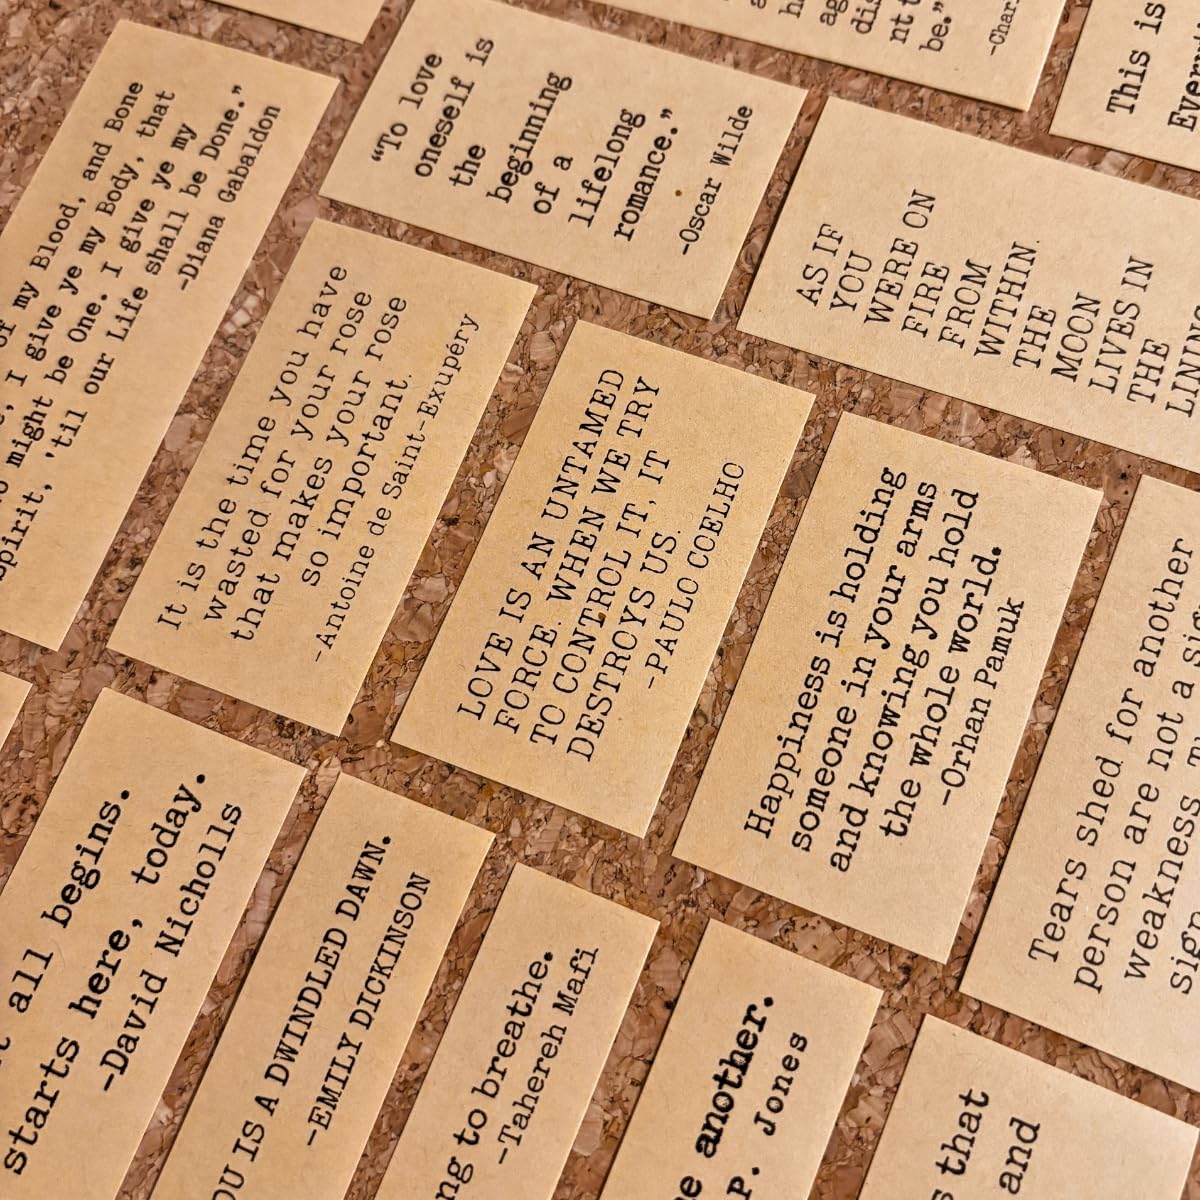 of my Blood, and Bone
I give ye my Body, that
might be One. I give ye my
spirit, 'til our Life shall be Done.”
-Diana Gabaldon
“To love
oneself is
the
beginning
of a
lifelong
romance.”
-Oscar Wilde
be.”
This is
AS IF
YOU
WERE ON
FIRE
FROM
WITHIN.
THE
MOON
LIVES IN
THE
LINING
It is the time you have
wasted for your rose
that makes your rose
so important.
-Antoine de Saint-Exupéry
LOVE IS AN UNTAMED
FORCE. WHEN WE TRY
TO CONTROL IT, IT
DESTROYS US.
-PAULO COELHO
Happiness is holding
someone in your arms
and knowing you hold
the whole world.
-Orhan Pamuk
Tears shed for another
person are not a
weakness.
all begins.
starts here, today.
-David Nicholls
IS A DWINDLED DAWN.
-EMILY DICKINSON
to breathe.
-Tahereh Mafi
another.
P. Jones
that
and